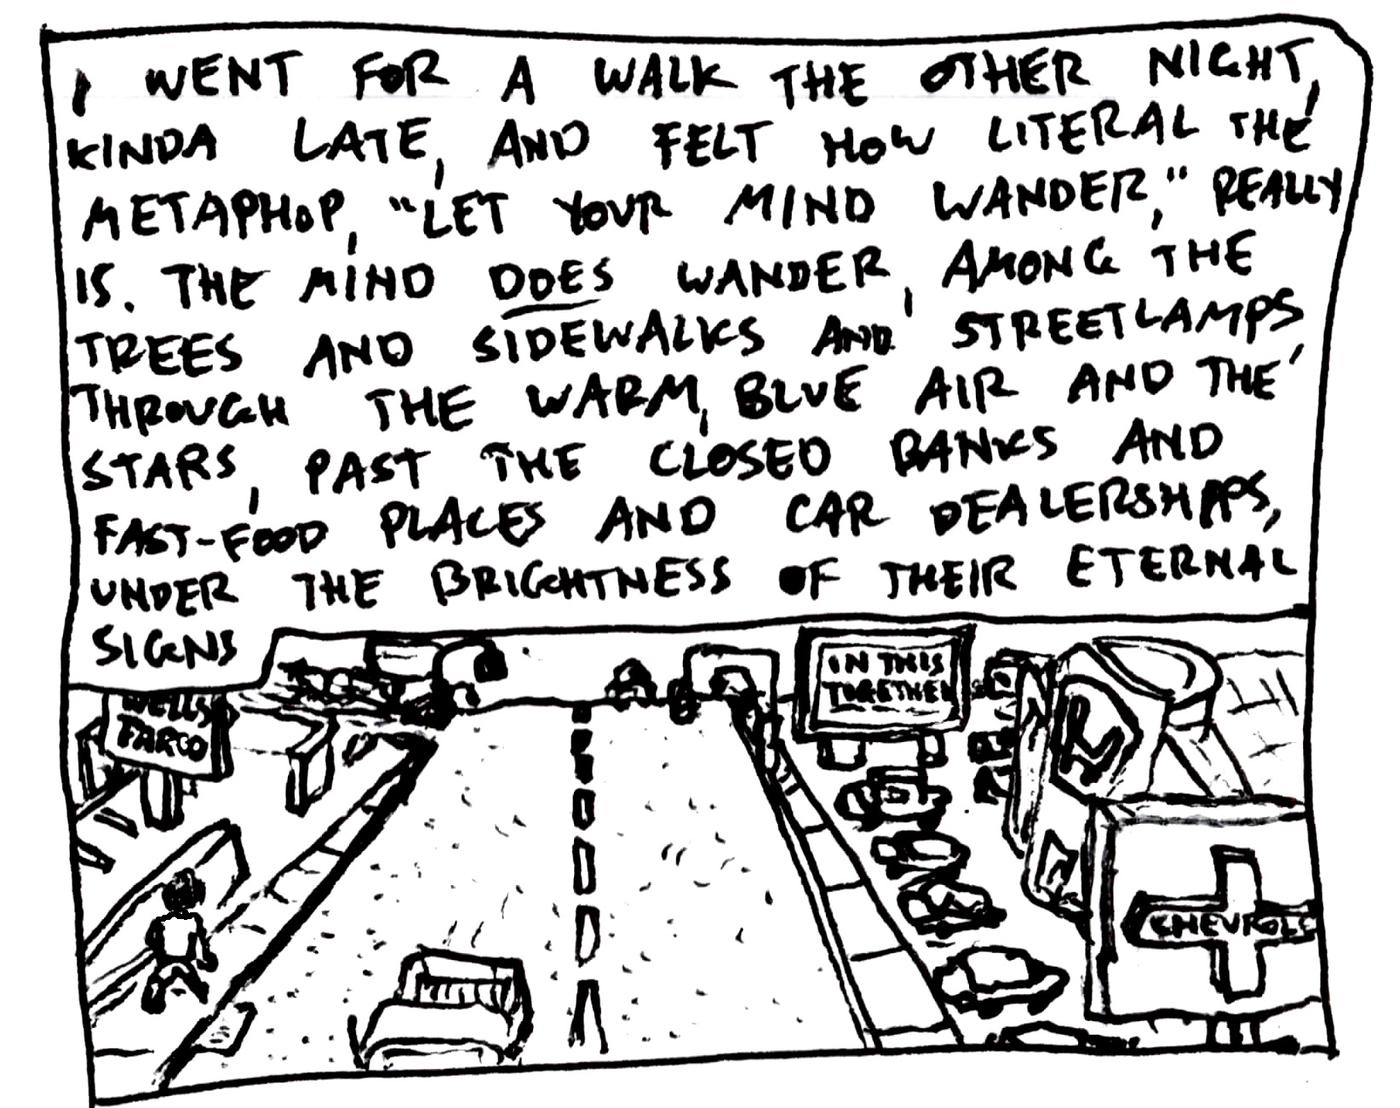 I WENT FOR A WALK THE OTHER NIGHT,
KINDA LATE, AND FELT HOW LITERAL THE
METAPHOR, "LET YOUR MIND WANDER," REALLY
IS. THE MIND DOES WANDER, AMONG THE
TREES AND SIDEWALKS AND STREETLAMPS,
THROUGH THE WARM, BLUE AIR AND THE
STARS, PAST THE CLOSED BANKS AND
FAST-FOOD PLACES AND CAR DEALERSHIPS,
UNDER THE BRIGHTNESS OF THEIR ETERNAL
SIGNS
WELLS
FARGO
IN THIS
TOGETHER
R
CHEVROLE